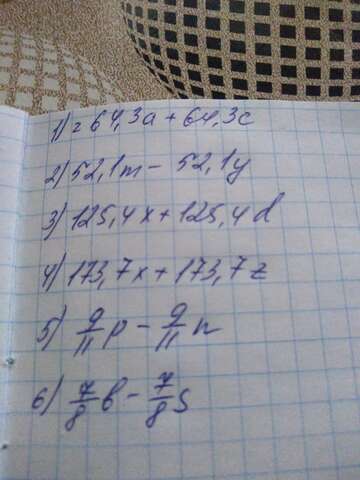 1) = 64,3a + 64,3c
2) 52,1m - 52,1y
3) 125,4x + 125,4d
4) 173,7x + 173,7z
5) 9/11 p - 9/11 n
6) 7/8 b - 7/8 s